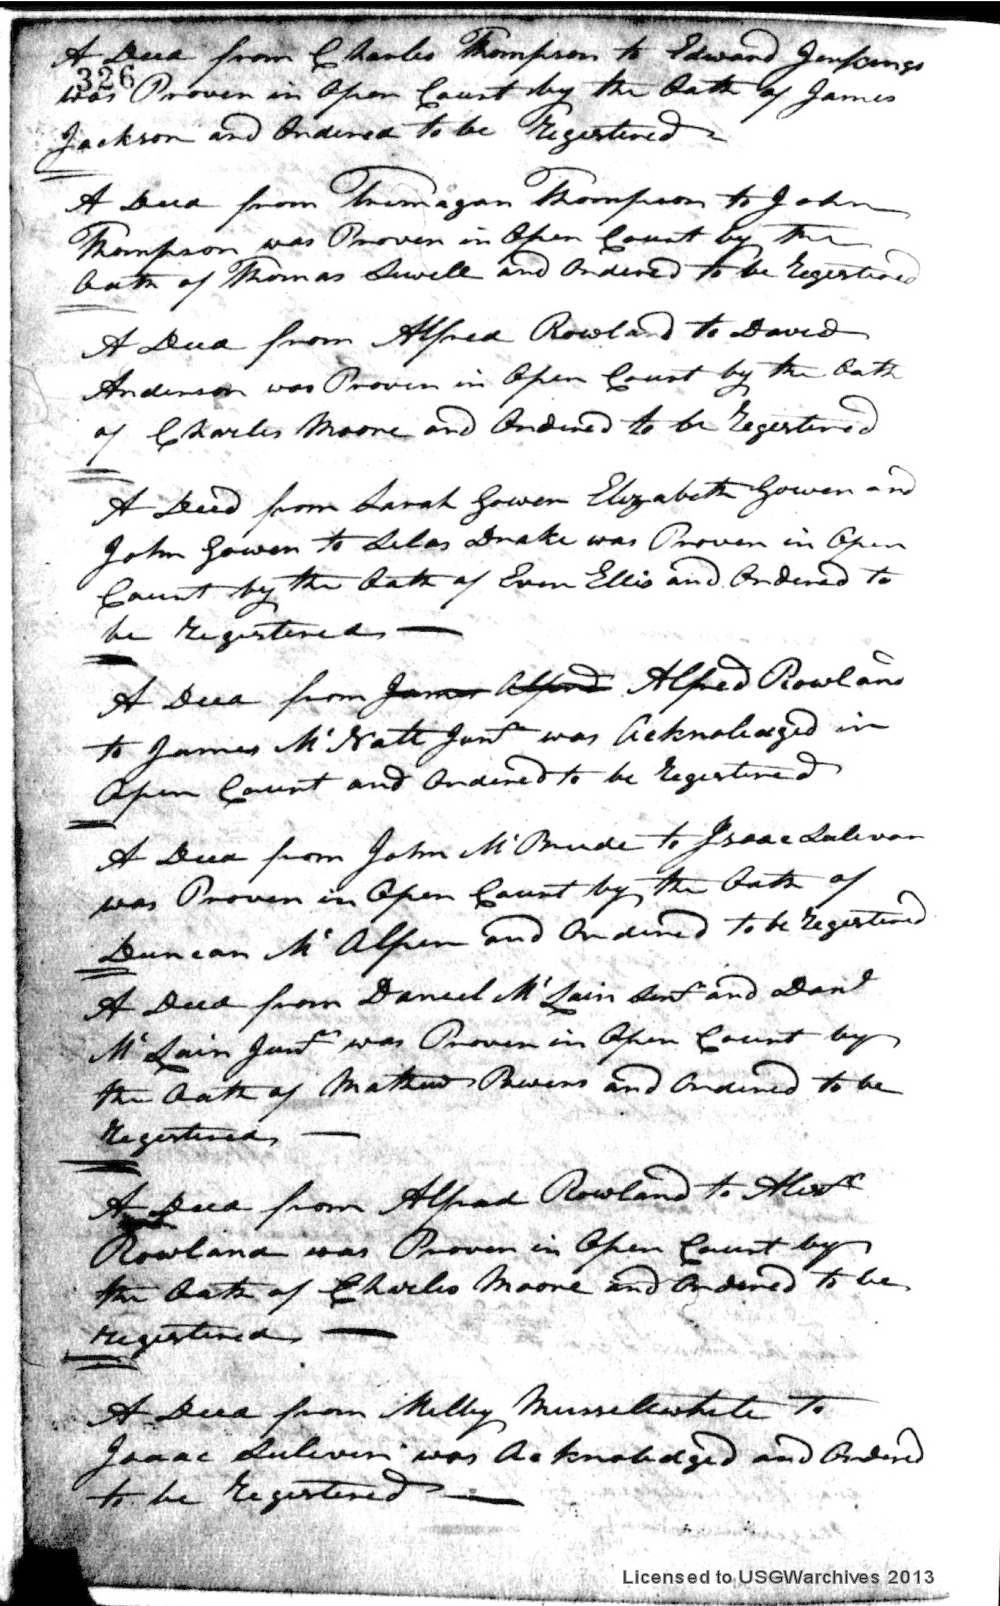 A Deed from Charles Thompson to Edward Jenkings
326
was Proven in Open Court by the Oath of James
Jackson and Ordered to be Regestered
A Deed from Trimagan Thompson to John
Thompson was Proven in Open Court by the
Oath of Thomas Sewell and Ordered to be Regestered
A Deed from Alfred Rowland to David
Anderson was Proven in Open Court by the Oath
of Charles Moore and Ordered to be Regestered
A Deed from Sarah Gowen Elizabeth Gowen and
John Gowen to Silas Drake was Proven in Open
Court by the Oath of Even Ellis and Ordered to
be Regestered
A Deed from James Alfred Alfred Rowland
to James Mc Natt Junr was Acknoledged in
Open Court and Ordered to be Regestered
A Deed from John Mc Bride to Isaac Sulivan
was Proven in Open Court by the Oath of
Duncan Mc Alpin and Ordered to be Regestered
A Deed from Daniel Mc Lain Senr and Danl
Mc Lain Junr was Proven in Open Court by
the Oath of Mathew Bivens and Ordered to be
Regestered
A Deed from Alfred Rowland to Alexr
Rowland was Proven in Open Court by
the Oath of Charles Moore and Ordered to be
Regestered
A Deed from Milby Musselewhite to
Isaac Suliven was Acknoledged and Ordered
to be Regestered
Licensed to USGWarchives 2013